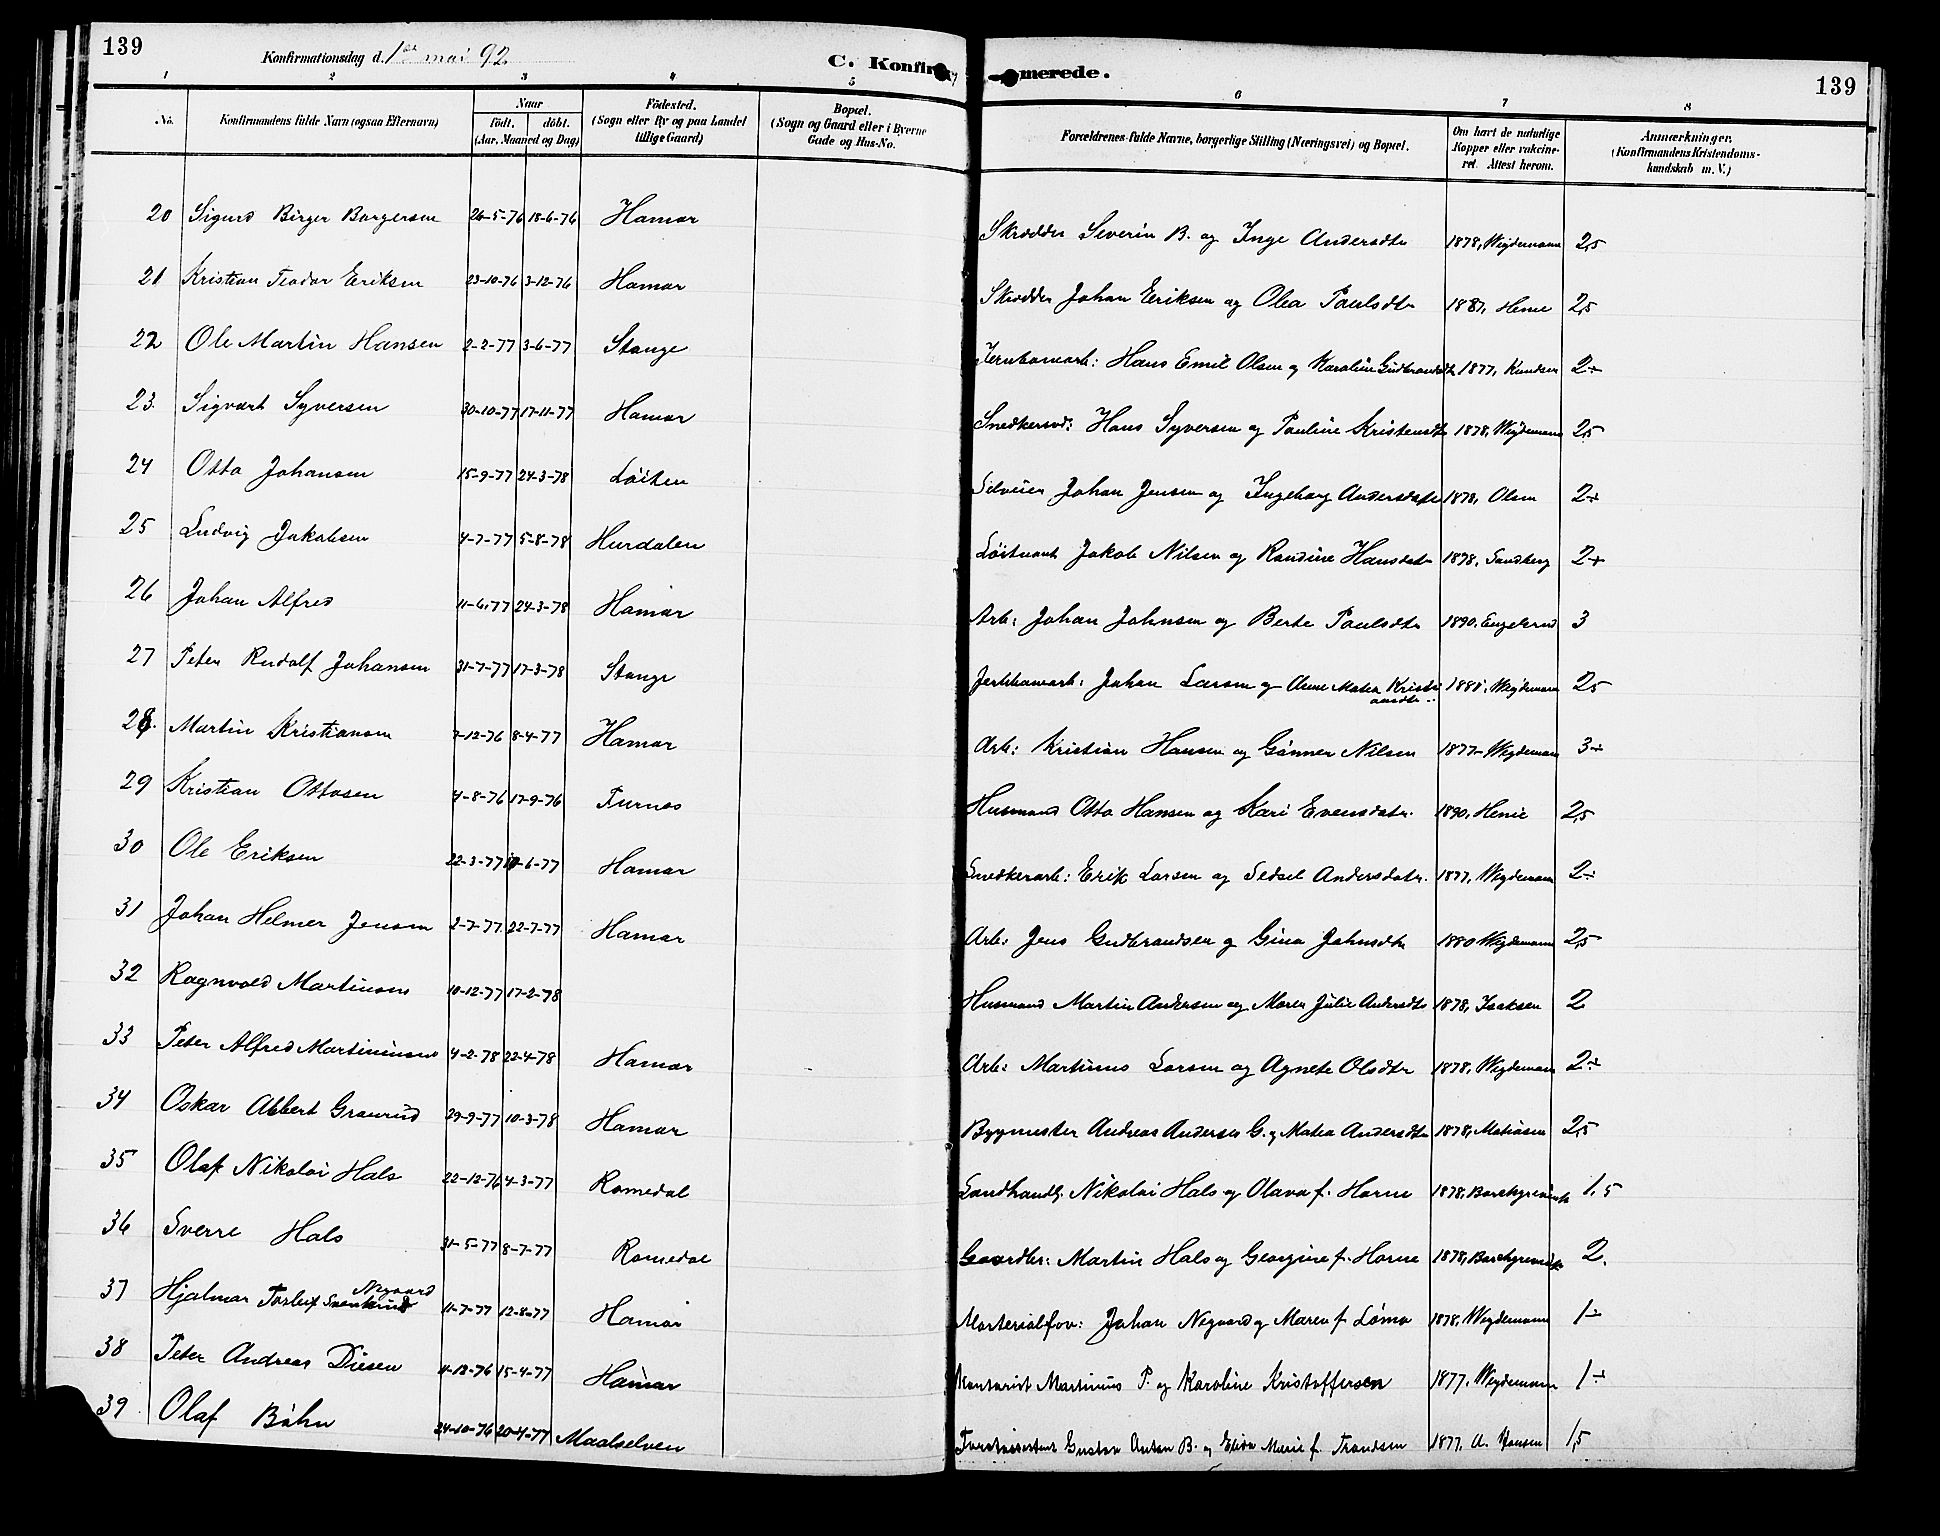 139
Konfirmationsdag d. 1ste mai 92.
C. Konfir merede.
139
1 2 3 4 5 6 7 8
No. Konfirmandens fulde Navn (ogsaa Efternavn) Naar født. døbt. (Aar, Maaned og Dag) Fødested. (Sogn eller By og paa Landet tillige Gaard) Bopæl. (Sogn og Gaard eller i Byerne Gade og Hus-No. Forældrenes fulde Navne, borgerlige Stilling (Næringsvei) og Bopæl. Om havt de naturlige Kopper eller vakcineret. Attest herom. Anmærkninger. (Konfirmandens Kristendomskundskab m. V.)
20 Sigurd Birger Borgersen 26-5-76 18-6-76 Hamar Skrædder Severin B. og Inge Andersdtr 1878, Wegdemann 2,5
21 Kristian Teodor Eriksen 23-10-76 3-12-76 Hamar Skrædder Johan Eriksen og Olea Paulsdtr 1887, Henie 2,5
22 Ole Martin Hansen 2-2-77 3-6-77 Stange Jernbanearb: Hans Emil Olsen og Karoline Gudbrandsdtr 1877, Knudsen 2÷
23. Sigvart Syversen 30-10-77 17-11-77 Hamar Snedkersvd: Hans Syversen og Pauline Kristensdtr 1878, Wegdemann 2,5
24 Otto Johansen 15-9-77 24-3-78 Løiten Johan Jensen og Ingeborg Andersdatr 1878, Olsen 2÷
25 Ludvig Jakobsen 4-7-77 5-8-78 Hurdalen Løitnant Jakob Nilsen og Randine Hansdatr 1878, Sandberg 2÷
26 Johan Alfred 11-6-77 24-3-78 Hamar Arb: Johan Johnsen og Berte Paulsdtr 1890, Engelsrud 3
27 Peter Rudolf Johansen 31-7-77 17-3-78 Stange Jernbanearb: Johan Larsen og Anne Matea Kristiansdtr 1881, Wegdemann 2,5
28. Martin Kristiansen 7-12-76 8-4-77 Hamar Arb: Kristian Hansen og Gunner Nilsen 1877- Wegdemann 3÷
29 Kristian Ottosen 4-8-76 17-9-76 Furnes Husmand Otto Hansen og Kari Evensdatr. 1890, Henie 2,5
30 Ole Eriksen 22-3-77 10-6-77 Hamar Snedkerarb: Erik Larsen og Sedsel Andersdatr. 1877, Wegdemann 2÷
31 Johan Helmer Jensen 2-7-77 22-7-77 Hamar Arb: Jens Gudbrandsen og Gina Johnsdtr 1880 Wegdemann 2,5
32 Ragnvald Martinsen 10-12-77 17-2-78 Husmand Martin Andersen og Maren Julie Andersdtr 1878, Isaksen 2
33 Peter Alfred Martiniusen 4-2-78 22-4-78 Hamar Arb: Martinus Larsen og Agnete Olsdtr 1878, Wegdemann 2÷
34 Oskar Albert Granrud 29-9-77 10-3-78 Hamar Bygmester Andreas Andersen G. og Matea Andersdtr 1878, Matiasen 2,5
35 Olaf Nikolai Hals 22-12-76 4-3-77 Romedal Landhandl. Nikolai Hals og Olava f. Horne 1878, Borchgrevink 1,5
36 Sverre Hals 31-5-77 8-7-77 Romedal Gaardbr: Martin Hals og Georgine f. Horne 1878, Borchgrevink 2.
37 Hjalmar Torleif Svenkerud Nygaard 11-7-77 12-8-77 Hamar Materialforv: Johan Nygaard og Maren f. Lømo 1878, Wegdemann 1÷
38 Peter Andreas Diesen 11-12-76 15-4-77 Hamar Kontorist Martinus P. og Karoline Kristoffersen 1877, Wegdemann 1÷
39 Olaf Bøhn 24-10-76 20-4-77 Maalselven Forstassistent Gustav Anton B. og Elida Marie f. Trondsen 1877, A. Hansen 1,5